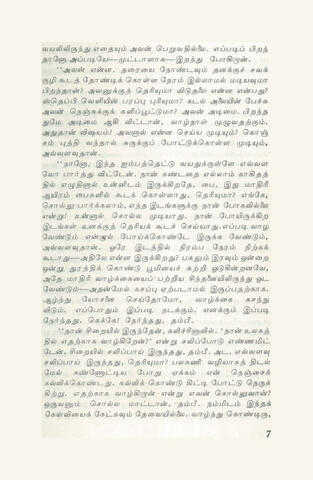 வயலிலிருந்து எதையும் அவன் பெறுவதில்லை. எப்படிப் பிறந்
தானோ அப்படியே—முட்டாளாக—இறந்து போகிறான்.
''அவன் என்ன. தரையை நோண்டவும் தனக்குச் சவக்
குழி கூடத் தோண்டிக் கொள்ள நேரம் இல்லாமல் மடியவுமா
பிறந்தான்? அவனுக்குத் தெரியுமா விடுதலை என்ன என்பது?
ஸ்தெப்பி வெளியின் பரப்பு புரியுமா? கடல் அலையின் பேச்சு
அவன் நெஞ்சுக்குக் களிப்பூட்டுமா? அவன் அடிமை. பிறந்த
துமே அடிமை ஆகி விட்டான், வாழ்நாள் முழுவதற்கும்,
அதுதான் விஷயம்! அவனால் என்ன செய்ய முடியும்? கொஞ்
சம் புத்தி வந்தால் சுருக்குப் போட்டுக்கொள்ள முடியும்,
அவ்வளவுதான்.
''நானோ, இந்த ஐம்பத்தெட்டு வயதுக்குள்ளே எவ்வள
வோ பார்த்து விட்டேன். நான் கண்டதை எல்லாம் காகிதத்
தில் எழுதினால் உன்னிடம் இருக்கிறதே, பை, இது மாதிரி
ஆயிரம் பைகளில் கூடக் கொள்ளாது, தெரியுமா? எங்கே,
சொல்லு பார்க்கலாம், எந்த இடங்களுக்கு நான் போகவில்லை
என்று! உன்னால் சொல்ல முடியாது. நான் போயிருக்கிற
இடங்கள் உனக்குத் தெரியக் கூடச் செய்யாது.எப்படி வாழ
வேண்டும் என்றால் போய்க்கொண்டே இருக்க வேண்டும்,
அவ்வளவுதான். ஒரே இடத்தில் நிரம்ப நேரம் நிற்கக்
கூடாது—அதிலே என்ன இருக்கிறது? பகலும் இரவும் ஒன்றை
ஒன்று துரத்திக் கொண்டு பூமியைச் சுற்றி ஓடுகின்றனவே,
அதே மாதிரி வாழ்க்கையைப் பற்றிய சிந்தனையிலிருந்து ஓட
வேண்டும்—அதன்மேல் கசப்பு ஏற்படாமல் இருப்பதற்காக.
ஆழ்ந்து யோசனை செய்தோமோ, வாழ்க்கை கசந்து
விடும், எப்போதும் இப்படி நடக்கும். எனக்கும் இப்படி
நேர்ந்தது. கெக்கே! நேர்ந்தது, தம்பீ.
''நான் சிறையில் இருந்தேன், கலிச்சீனாவில். 'நான் உலகத்
தில் எதற்காக வாழ்கிறேன்?' என்று சலிப்போடு எண்ணமிட்
டேன். சிறையில் சலிப்பாய் இருந்தது, தம்பீ. அட, எவ்வளவு
சலிப்பாய் இருந்தது, தெரியுமா? பலகணி வழியாகத் திடல்
மேல் கண்ணோட்டிய போது ஏக்கம் என் நெஞ்சைக்
கவ்விக்கொண்டது. கவ்விக் கொண்டு கிட்டி போட்டு நெருக்
கிற்று. எதற்காக வாழ்கிறான் என்று எவன் சொல்லுவான்?
ஒருவனும் சொல்ல மாட்டான், தம்பீ. நம்மிடம் இந்தக்
கேள்வியைக் கேட்கவும் தேவையில்லை. வாழ்ந்து கொண்டிரு,
7